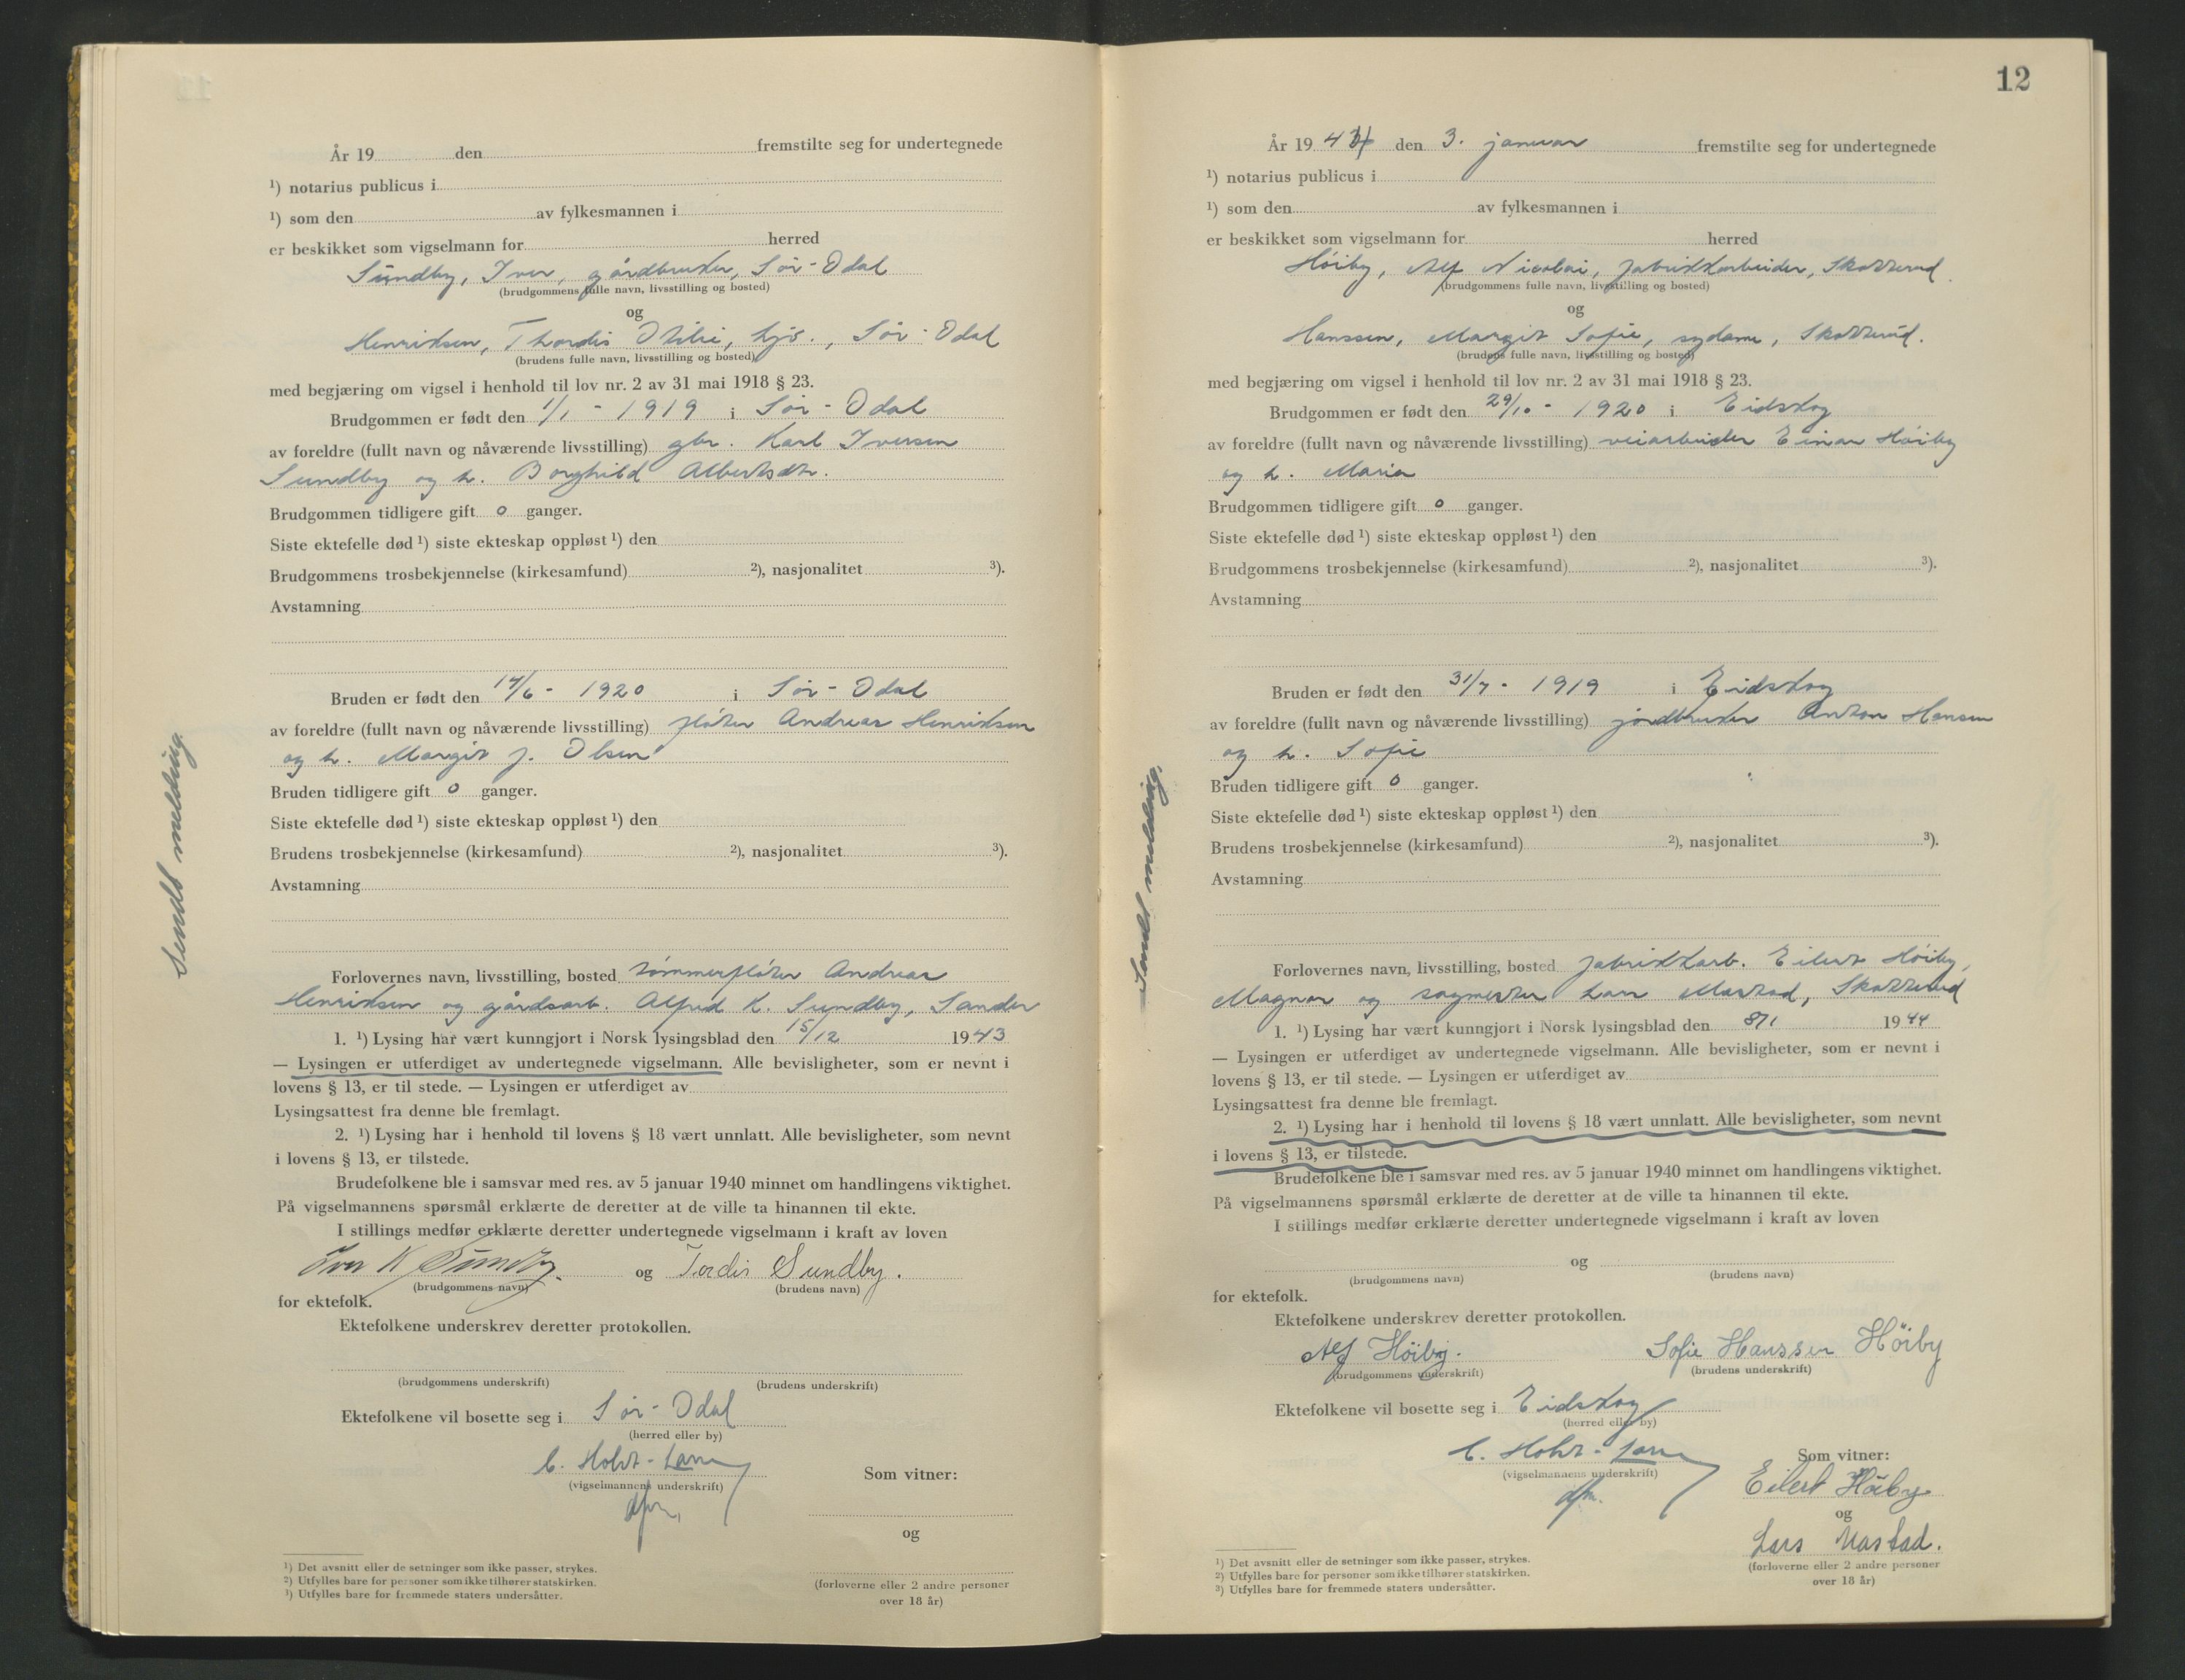 År 19 den fremstilte seg for undertegnede
¹) notarius publicus i
¹) som den av fylkesmannen i
er beskikket som vigselmann for herred
Sundby, Iver, gårdbruker, Sør-Odal
(brudgommens fulle navn, livsstilling og bosted)
og
Henriksen, Thordis Otilie, hjv., Sør-Odal
(brudens fulle navn, livsstilling og bosted)
med begjæring om vigsel i henhold til lov nr. 2 av 31 mai 1918 § 23.
Brudgommen er født den 1/1 - 1919 i Sør-Odal
av foreldre (fullt navn og nåværende livsstilling) gbr. Karl Iversen
Sundby og h. Borghild Albertsdtr.
Brudgommen tidligere gift 0 ganger.
Siste ektefelle død ¹) siste ekteskap oppløst ¹) den
Brudgommens trosbekjennelse (kirkesamfund) ²), nasjonalitet ³).
Avstamning
Bruden er født den 14/6 - 1920 i Sør-Odal
av foreldre (fullt navn og nåværende livsstilling) fløter Andreas Henriksen
og h. Margit J. Olsen
Bruden tidligere gift 0 ganger.
Siste ektefelle død ¹) siste ekteskap oppløst ¹) den
Brudens trosbekjennelse (kirkesamfund) ²), nasjonalitet ³).
Avstamning
Sendt melding.
Forlovernes navn, livsstilling, bosted tømmerfløter Andreas
Henriksen og gårdsarb. Alfred K. Sundby, Sander
1. ¹) Lysing har vært kunngjort i Norsk lysingsblad den 15/12 1943
— Lysingen er utferdiget av undertegnede vigselmann. Alle bevisligheter, som er nevnt i
lovens § 13, er til stede. — Lysingen er utferdiget av
Lysingsattest fra denne ble fremlagt.
2. ¹) Lysing har i henhold til lovens § 18 vært unnlatt. Alle bevisligheter, som nevnt
i lovens § 13, er tilstede.
Brudefolkene ble i samsvar med res. av 5 januar 1940 minnet om handlingens viktighet.
På vigselmannens spørsmål erklærte de deretter at de ville ta hinannen til ekte.
I stillings medfør erklærte deretter undertegnede vigselmann i kraft av loven
Iver K Sundby. og Tordis Sundby.
(brudgommens navn) (brudens navn)
for ektefolk.
Ektefolkene underskrev deretter protokollen.
(brudgommens underskrift) (brudens underskrift)
Ektefolkene vil bosette seg i Sør-Odal
(herred eller by)
C. Holst-Larsen
(vigselmannens underskrift)
dfm.
Som vitner:
og
(forloverne eller 2 andre personer
over 18 år)
¹) Det avsnitt eller de setninger som ikke passer, strykes.
²) Utfylles bare for personer som ikke tilhører statskirken.
³) Utfylles bare for fremmede staters undersåtter.
12
År 1944 den 3. januar fremstilte seg for undertegnede
¹) notarius publicus i
¹) som den av fylkesmannen i
er beskikket som vigselmann for herred
Høiby, Alf Nicolai, fabrikkarbeider, Skotterud.
(brudgommens fulle navn, livsstilling og bosted)
og
Hanssen, Margit Sofie, sydame, Skotterud.
(brudens fulle navn, livsstilling og bosted)
med begjæring om vigsel i henhold til lov nr. 2 av 31 mai 1918 § 23.
Brudgommen er født den 29/10 - 1920 i Eidskog
av foreldre (fullt navn og nåværende livsstilling) veiarbeider Einar Høiby
og h. Maria
Brudgommen tidligere gift 0 ganger.
Siste ektefelle død ¹) siste ekteskap oppløst ¹) den
Brudgommens trosbekjennelse (kirkesamfund) ²), nasjonalitet ³).
Avstamning
Bruden er født den 31/7 - 1919 i Eidskog
av foreldre (fullt navn og nåværende livsstilling) jordbruker Anton Hansen
og h. Sofie
Bruden tidligere gift 0 ganger.
Siste ektefelle død ¹) siste ekteskap oppløst ¹) den
Brudens trosbekjennelse (kirkesamfund) ²), nasjonalitet ³).
Avstamning
Sendt melding.
Forlovernes navn, livsstilling, bosted fabrikkarb. Eilert Høiby,
Magnor og sagmester Lars Mastad, Skotterud
1. ¹) Lysing har vært kunngjort i Norsk lysingsblad den 8/1 1944
— Lysingen er utferdiget av undertegnede vigselmann. Alle bevisligheter, som er nevnt i
lovens § 13, er til stede. — Lysingen er utferdiget av
Lysingsattest fra denne ble fremlagt.
2. ¹) Lysing har i henhold til lovens § 18 vært unnlatt. Alle bevisligheter, som nevnt
i lovens § 13, er tilstede.
Brudefolkene ble i samsvar med res. av 5 januar 1940 minnet om handlingens viktighet.
På vigselmannens spørsmål erklærte de deretter at de ville ta hinannen til ekte.
I stillings medfør erklærte deretter undertegnede vigselmann i kraft av loven
og
(brudgommens navn) (brudens navn)
for ektefolk.
Ektefolkene underskrev deretter protokollen.
Alf Höiby. Sofie Hanssen Höiby
(brudgommens underskrift) (brudens underskrift)
Ektefolkene vil bosette seg i Eidskog
(herred eller by)
C. Holst-Larsen
(vigselmannens underskrift)
dfm.
Som vitner:
Eilert Höiby
og
Lars Mastad.
(forloverne eller 2 andre personer
over 18 år)
¹) Det avsnitt eller de setninger som ikke passer, strykes.
²) Utfylles bare for personer som ikke tilhører statskirken.
³) Utfylles bare for fremmede staters undersåtter.